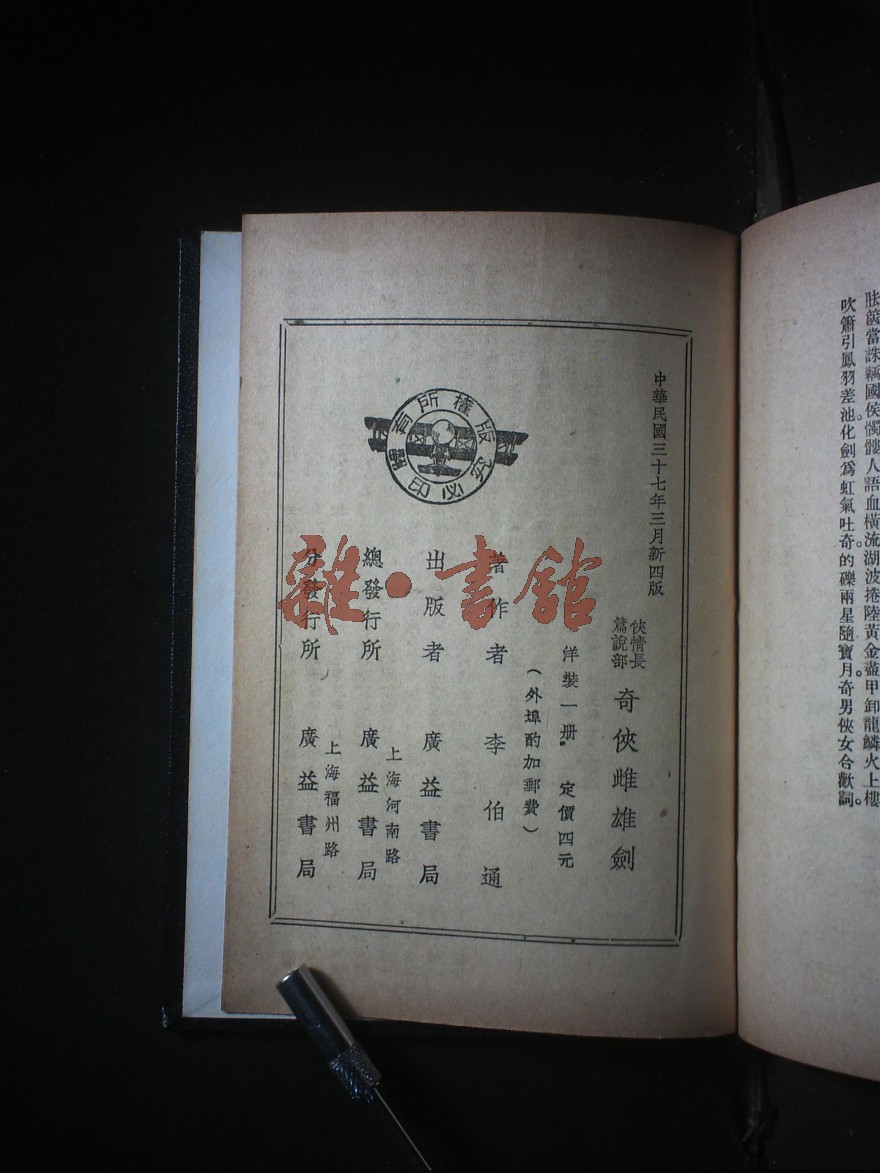 胠篋當誅竊國侯。髑髏人語血橫流。湖波捲陸黃金盡。甲卸龍鱗火上樓。
吹簫引鳳羽差池。化劍為虹氣吐奇。的礫兩星隨寶月。奇男俠女合歡詞。
中華民國三十七年三月新四版
俠情長
篇說部
奇俠雌雄劍
洋裝一册 定價四元
(外埠酌加郵費)
著作者 李伯通
出版者 廣益書局
上海河南路
總發行所 廣益書局
上海福州路
分發行所 廣益書局
版權所有
翻印必究
雜·書館